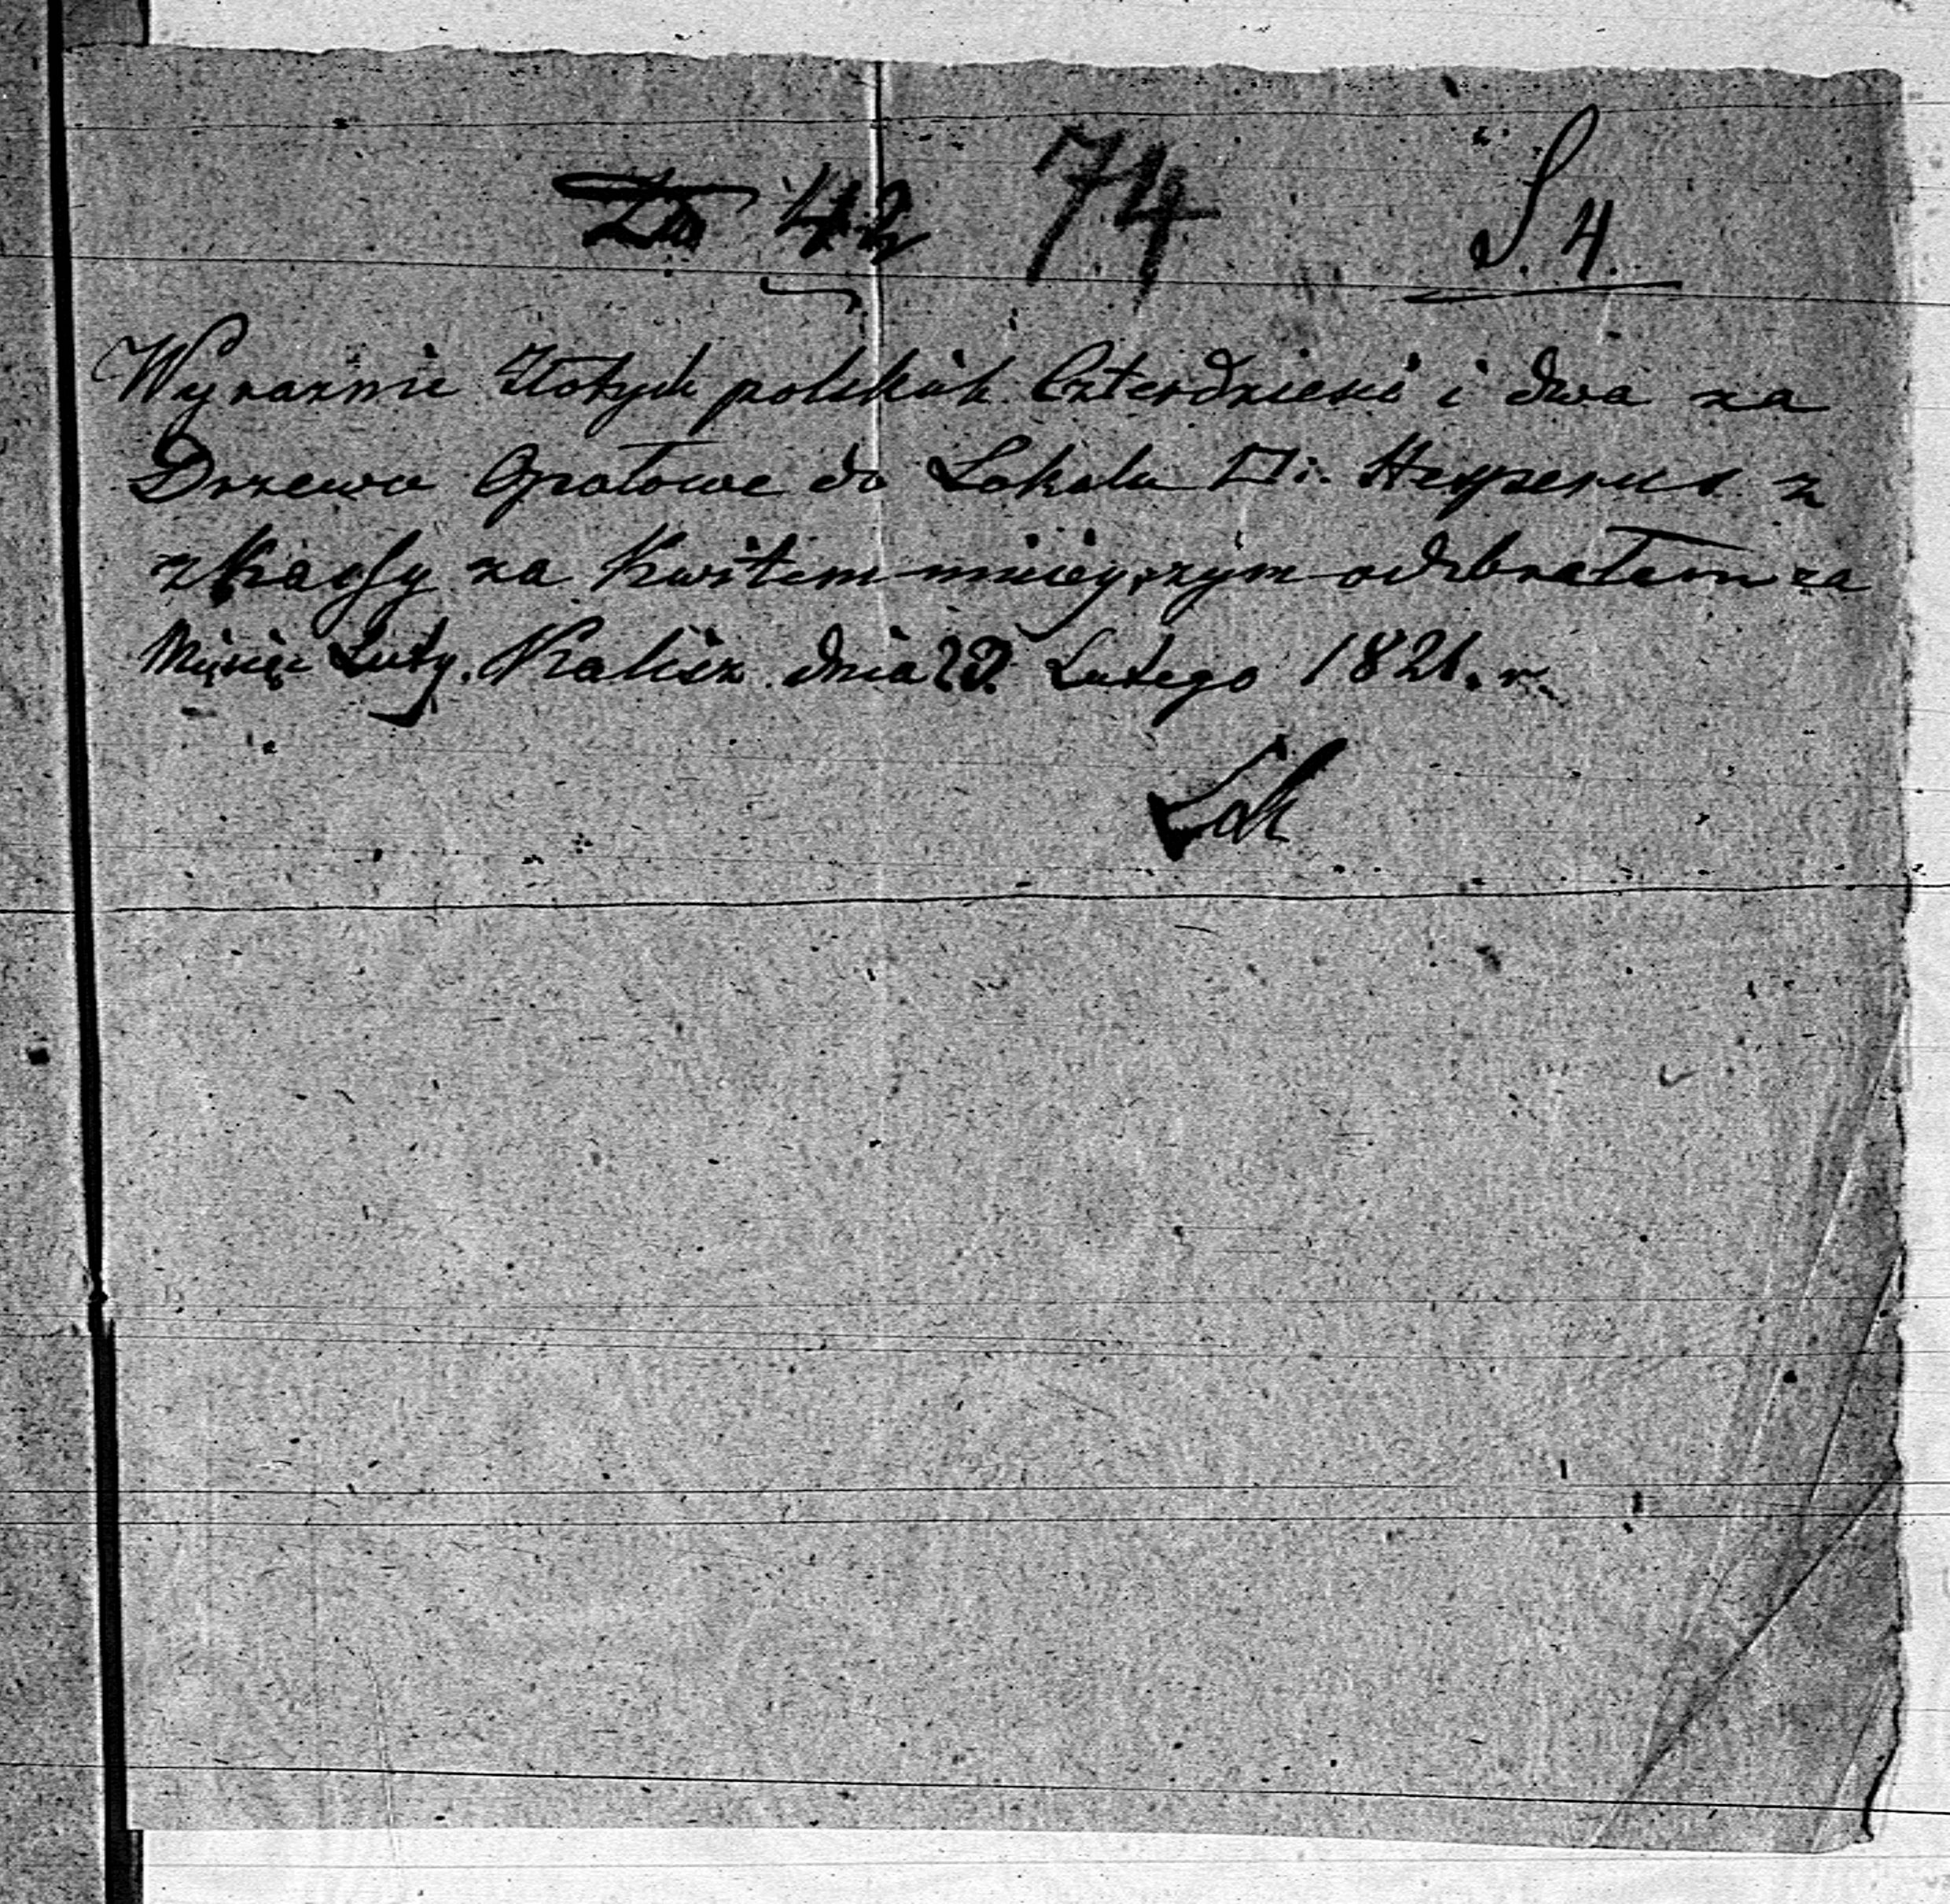 42 74 S. 4.
Wyraznie Złotych polskich Czterdzieści i dwa za
Drzewo Opałowe do Lokalu □ i. Hesperus z
z Kassy za Kwitem ninieyszym odebrałem za
Miesięc Luty. Kalisz dnia Lutego 1821. r.